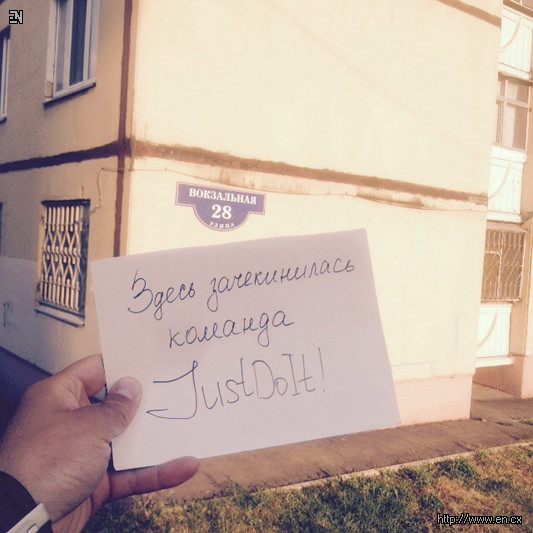 EN
ВОКЗАЛЬНАЯ
28
УЛИЦА
Здесь зачекинилась
команда
JustDoIt!
http://www.en.cx